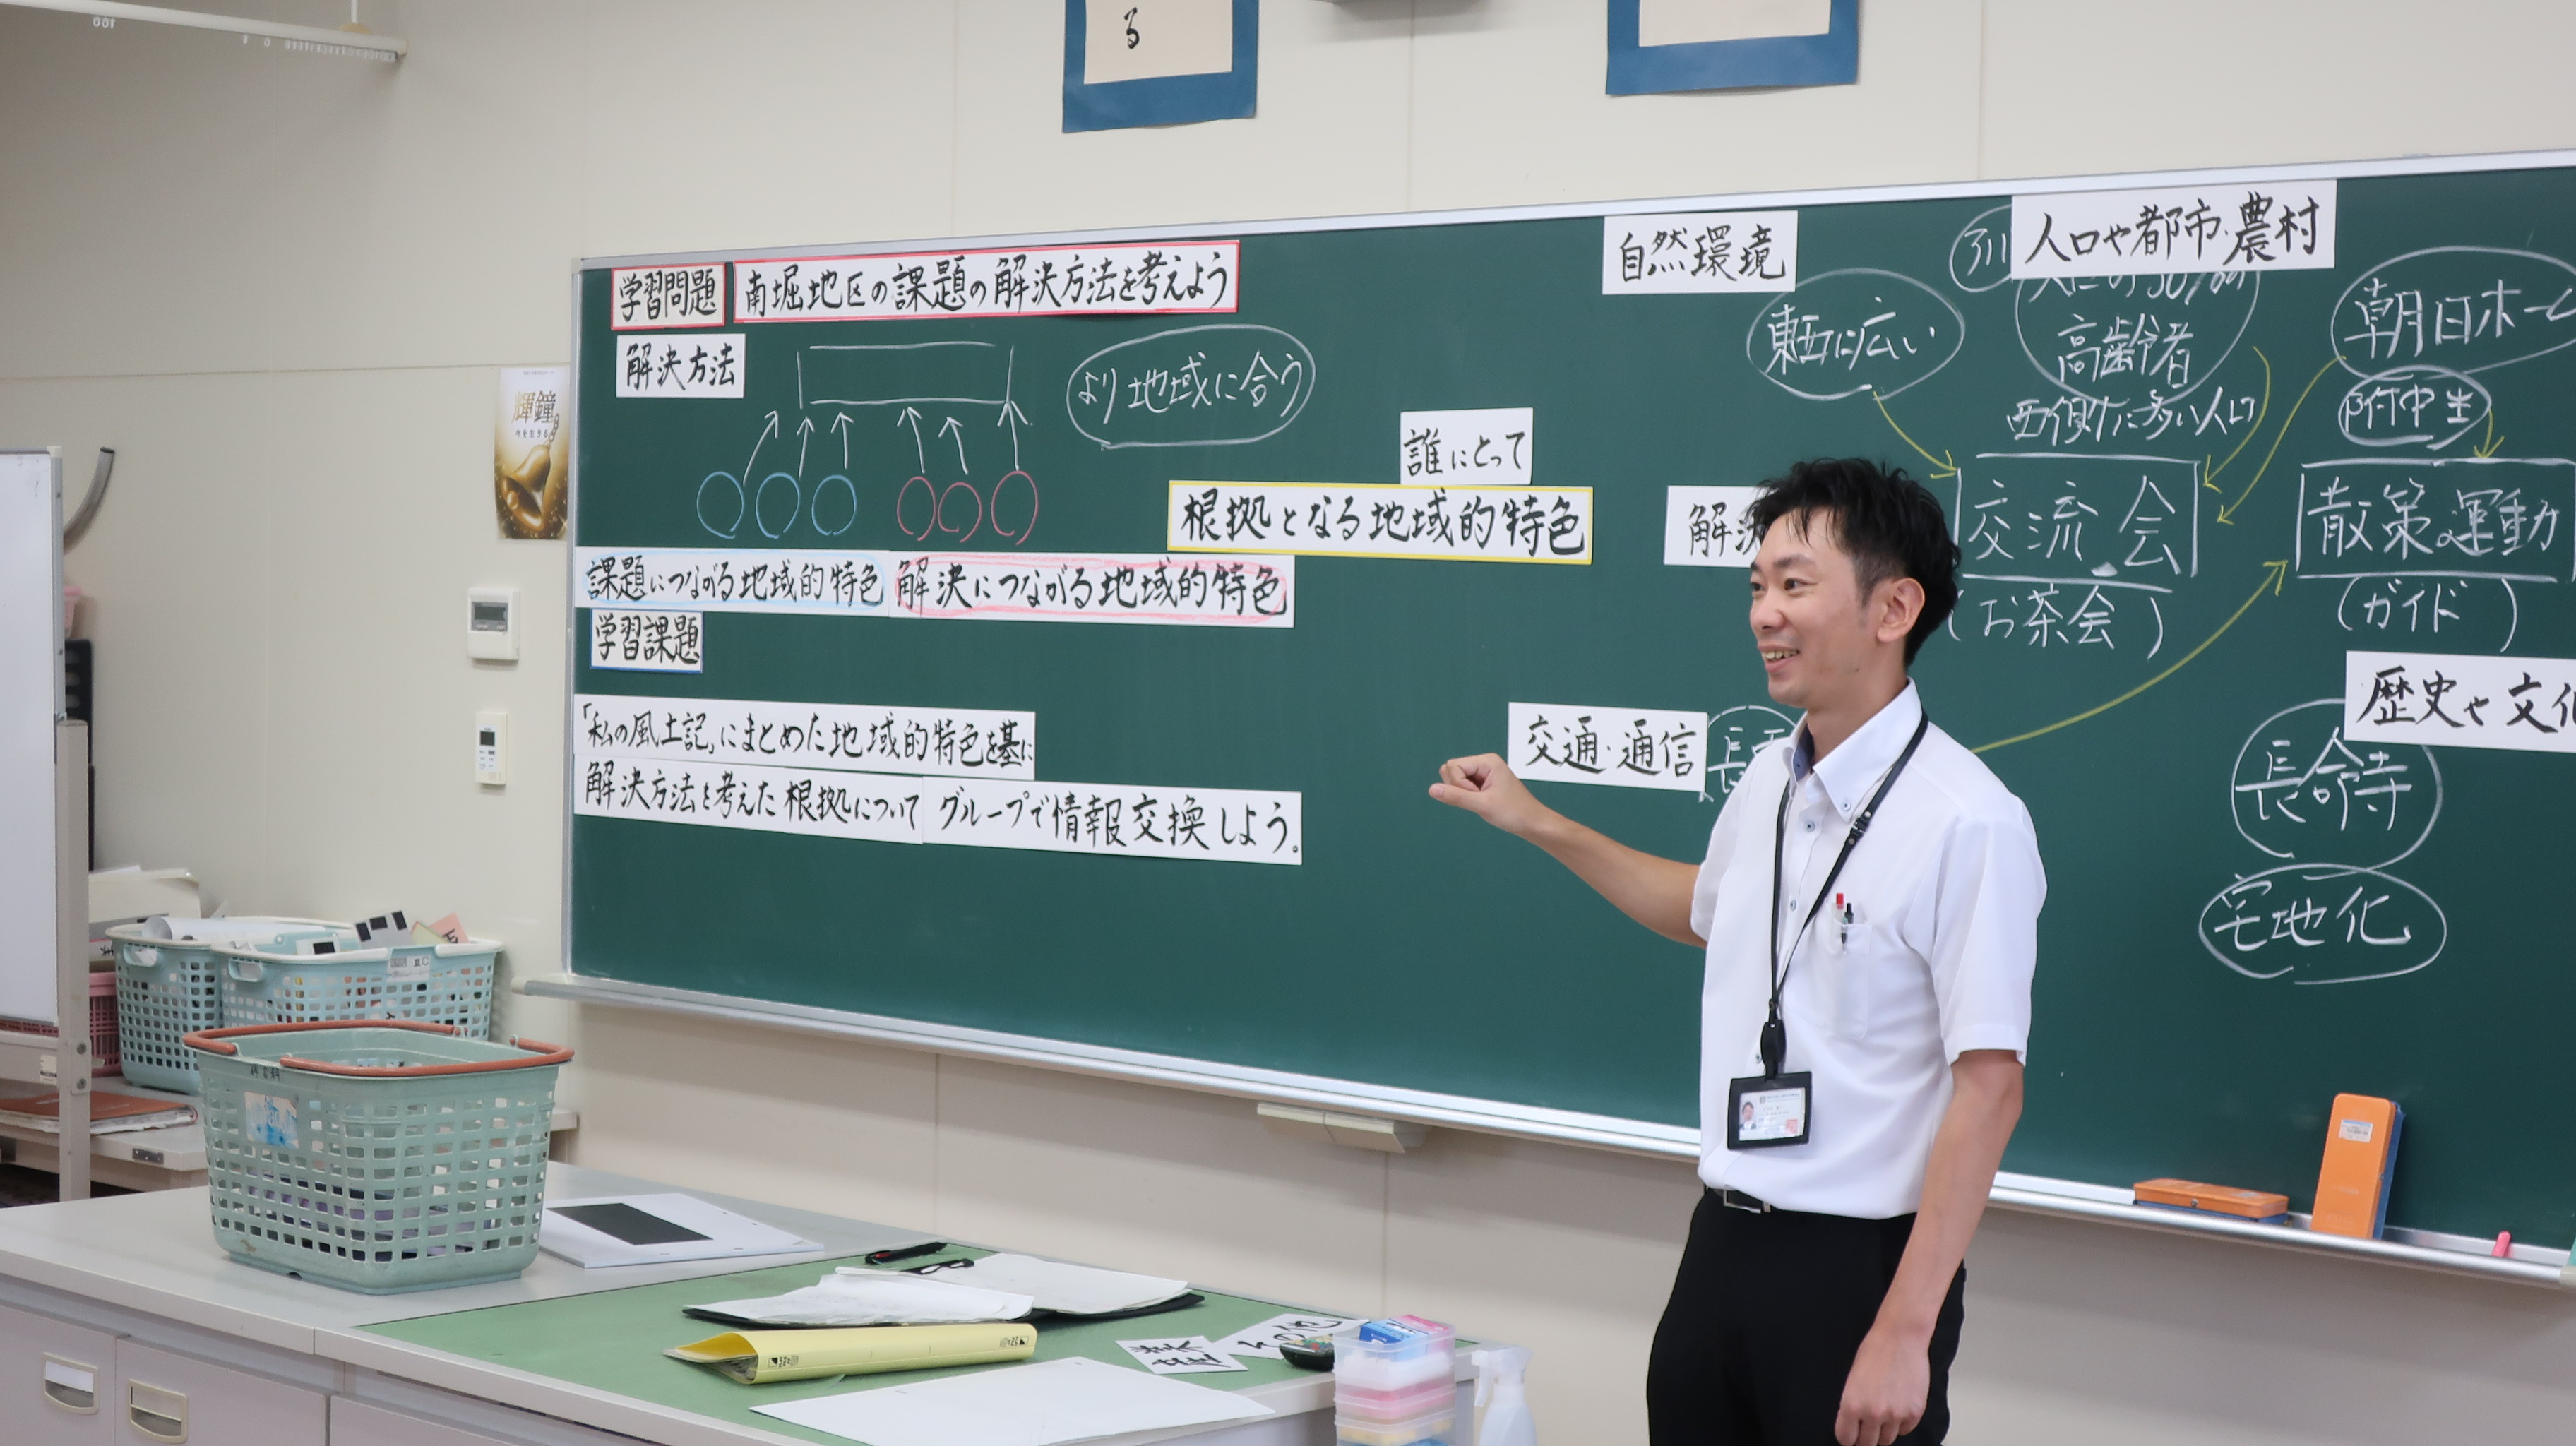 る
学習問題 南堀地区の課題の解決方法を考えよう
解決方法
より地域に合う
課題につながる地域的特色 解決につながる地域的特色
学習課題
「私の風土記」にまとめた地域的特色を基に
解決方法を考えた根拠について グループで情報交換しよう。
誰にとって
根拠となる地域的特色
自然環境
東西に広い
人口や都市・農村
高齢者
西側に多い人口
朝日ホー
附中生
解決
交流会
(お茶会)
散策・運動
(ガイド)
交通・通信
歴史や文化
長命寺
宅地化
輝鐘
今を生きる